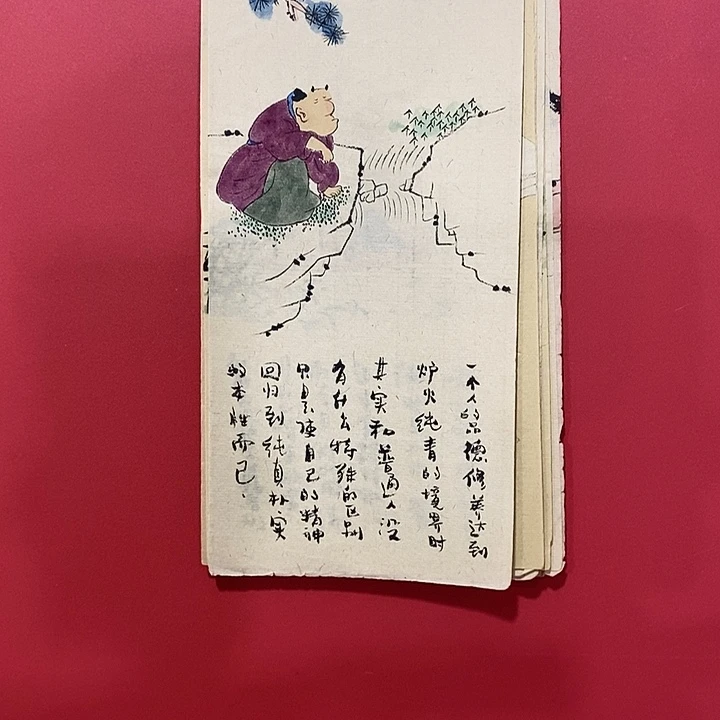 一个人的品德修养达到
炉火纯青的境界时
其实和普通人没
有什么特殊的区别
只是使自己的精神
回归到纯真朴实
的本性而已.